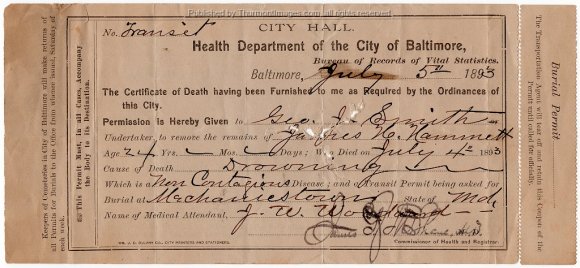 Published by ThurmontImages.com all rights reserved
CITY HALL.
No. Transit
Health Department of the City of Baltimore,
Bureau of Records of Vital Statistics.
Baltimore, July 5th 1893
The Certificate of Death having been Furnished to me as Required by the Ordinances of
this City.
Permission is Hereby Given to Geo. J. Smith
Undertaker to remove the remains of H. Hammett
Age 24 Yrs. Days; Who Died on July 4th 1893
Cause of Death Drowning
Which is a Non Contagious Disease; and a Transit Permit being asked for
Burial at Mechanicstown State of Md.
Name of Medical Attendant, J. W.
Commissioner of Health and Registrar.
WM. J. C. DULANY CO., CITY PRINTERS AND STATIONERS.
Keepers of Cemeteries in City of Baltimore will make returns of
all Permits for Burials to the Office from whence issued, Saturday of
each week.
This Permit Must, in all Cases, Accompany
the Body to its Destination.
Burial Permit
The Transportation Agent will tear off and retain this Coupon of the
Permit until called for officially.